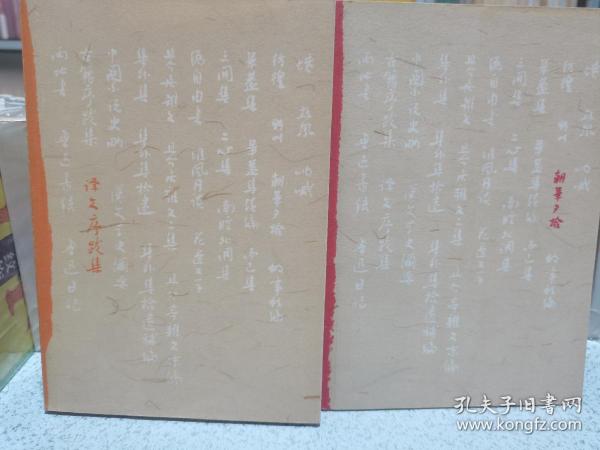 坟 热风 呐喊
彷徨 野草 朝華夕拾 故事新编
華盖集 華盖集续编 而已集
三闲集 二心集 南腔北调集
伪自由书 准风月谈 花边文学
且介亭杂文 且介亭杂文二集 且介亭杂文末编
集外集 集外集拾遗 集外集拾遗补编
中國小说史略 汉文学史纲要
古籍序跋集 译文序跋集
两地书 鲁迅书信 鲁迅日记
坟 热风 呐喊
彷徨 野草 朝華夕拾 故事新编
華盖集 華盖集续编 而已集
三闲集 二心集 南腔北调集
伪自由书 准风月谈 花边文学
且介亭杂文 且介亭杂文二集 且介亭杂文末编
集外集 集外集拾遗 集外集拾遗补编
中國小说史略 汉文学史纲要
古籍序跋集 译文序跋集
两地书 鲁迅书信 鲁迅日记
孔夫子旧书网
www.kongfz.com